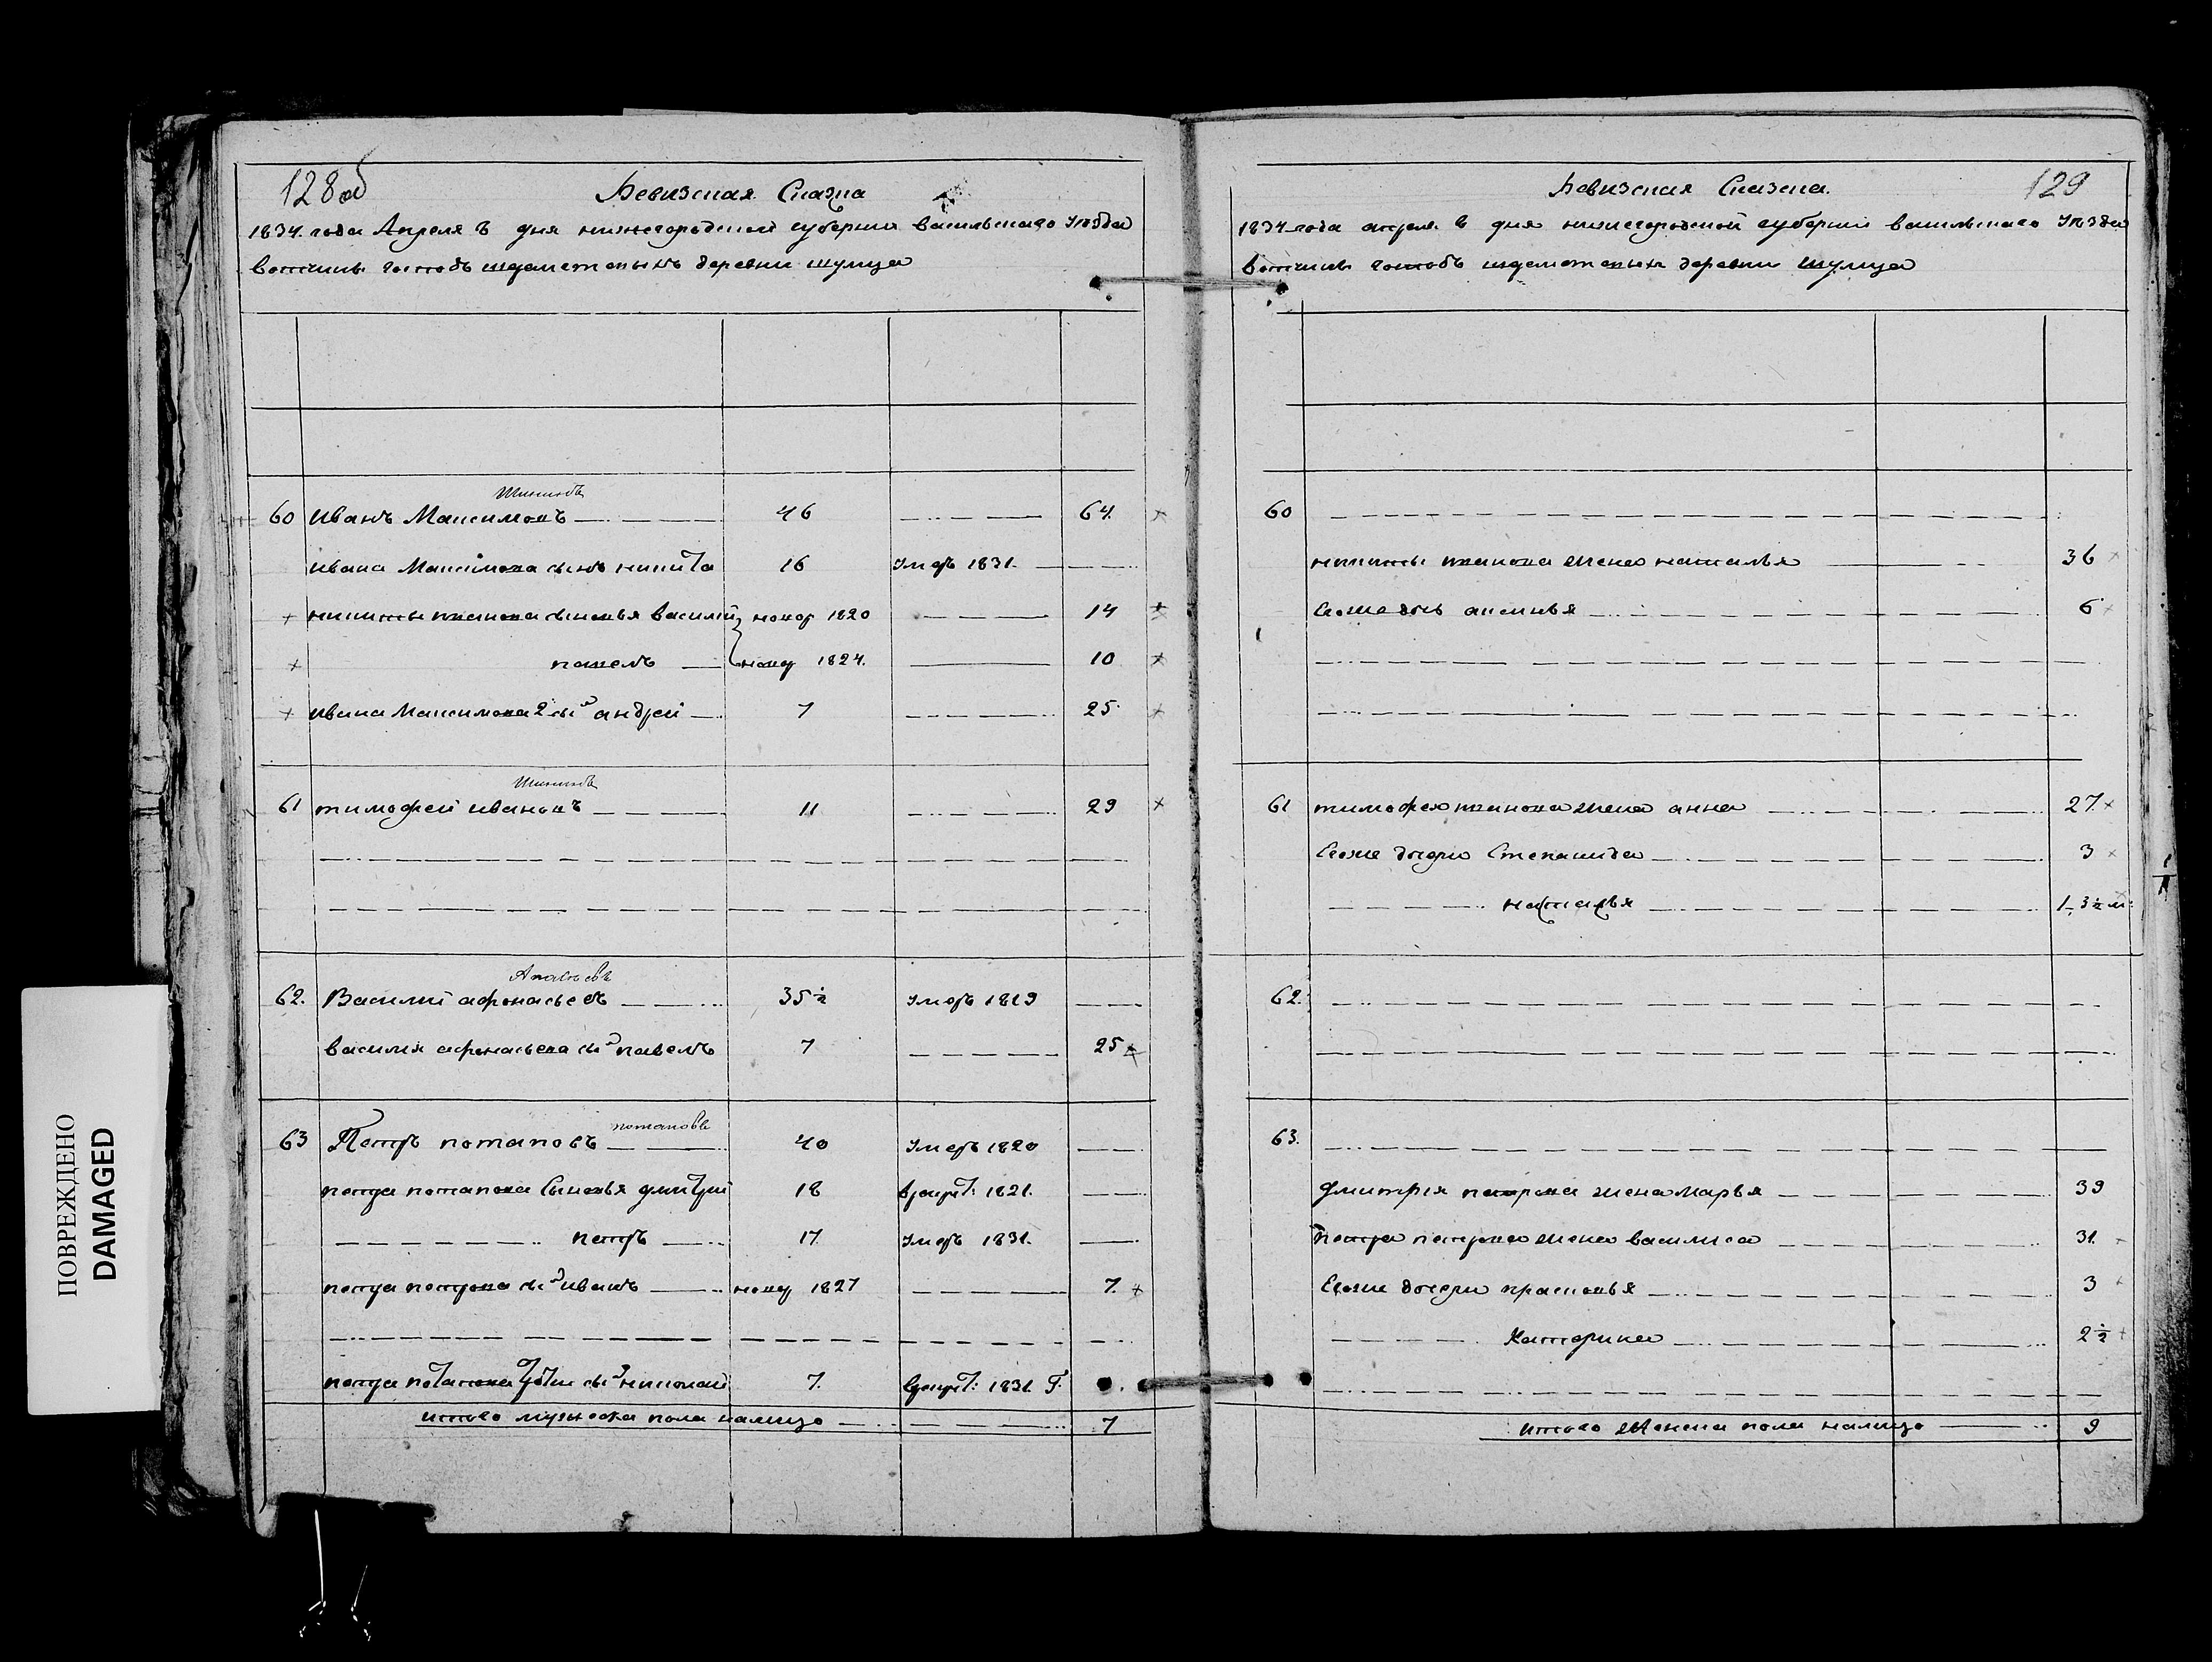 128об
Ревизская Сказка
1834. года Апреля в дня нижегородской губернии васильскаго уезда
вотчины господъ деревни шумца
Шишовъ
60 Иванъ Максимовъ 46 64.
ивана Максимова сынъ никита 16 умеръ 1831.
никиты иванова сыновья василий новор 1820 14
павелъ новор 1824. 10
ивана Максимова 2 сы андрей 7 25
61 тимофей ивановъ 11 29
62. Василий афонасьевъ 35½ умеръ 1819
василия афонасьева сы павелъ 7 25
потаповъ
63 Петръ потаповъ 40 умеръ 1820
петра потапова Сыновья дмитрий 18 врекрут: 1821.
петръ 17. умеръ 1831.
петра петрова сы иванъ новор 1827 7.
петра потапова третий сы николай 7. врекрут: 1831. г.
итого мужеска пола налицо 7
Ревизская Сказка. 129
1834 года апреля в дня нижегородской губернии васильскаго уезда
вотчины господъ деревни шумца
60
никиты иванова жена наталья 36
Ево же дочь аксинья 6
61 тимофея иванова жена анна 27.
Ево же дочери Степанида 3
наталья 1, 3½ м:
62.
63.
дмитрия петрова жена марья 39
Петра петрова жена василиса 31.
Ево же дочери прасковья 3
Катерина 2½
итого женска пола налицо 9
ПОВРЕЖДЕНО
DAMAGED